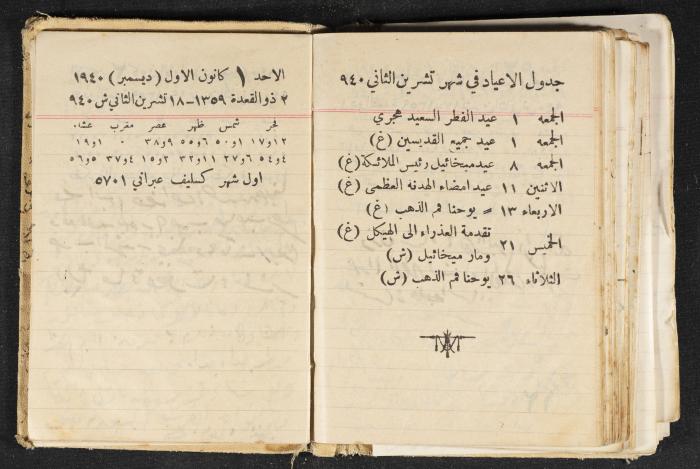 جدول الاعياد في شهر تشرين الثاني ٩٤٠
الجمعه ١ عيد الفطر السعيد هجري
الجمعه ١ عيد جميع القديسين (غ)
الجمعه ٨ عيد ميخائيل رئيس الملائكة (غ)
الاثنين ١١ عيد امضاء الهدنه العظمى (غ)
الاربعاء ١٣ = يوحنا فم الذهب (غ)
الخميس ٢١ تقدمة العذراء الى الهيكل (غ)
ومار ميخائيل (ش)
الثلاثاء ٢٦ يوحنا فم الذهب (ش)
الاحد ١ كانون الاول (ديسمبر) ١٩٤٠
٢ ذو القعدة ١٣٥٩ - ١٨ تشرين الثاني ش ٩٤٠
فجر شمس ظهر عصر مغرب عشا
١٢و١٧ ١و٥٠ ٦و٥٥ ٩و٣٨ ٠ ١و١٩
٤و٥٤ ٦و٢٧ ١١و٣٢ ٢و١٥ ٤و٣٧ ٥و٥٦
اول شهر كسليف عبراني ٥٧٠١